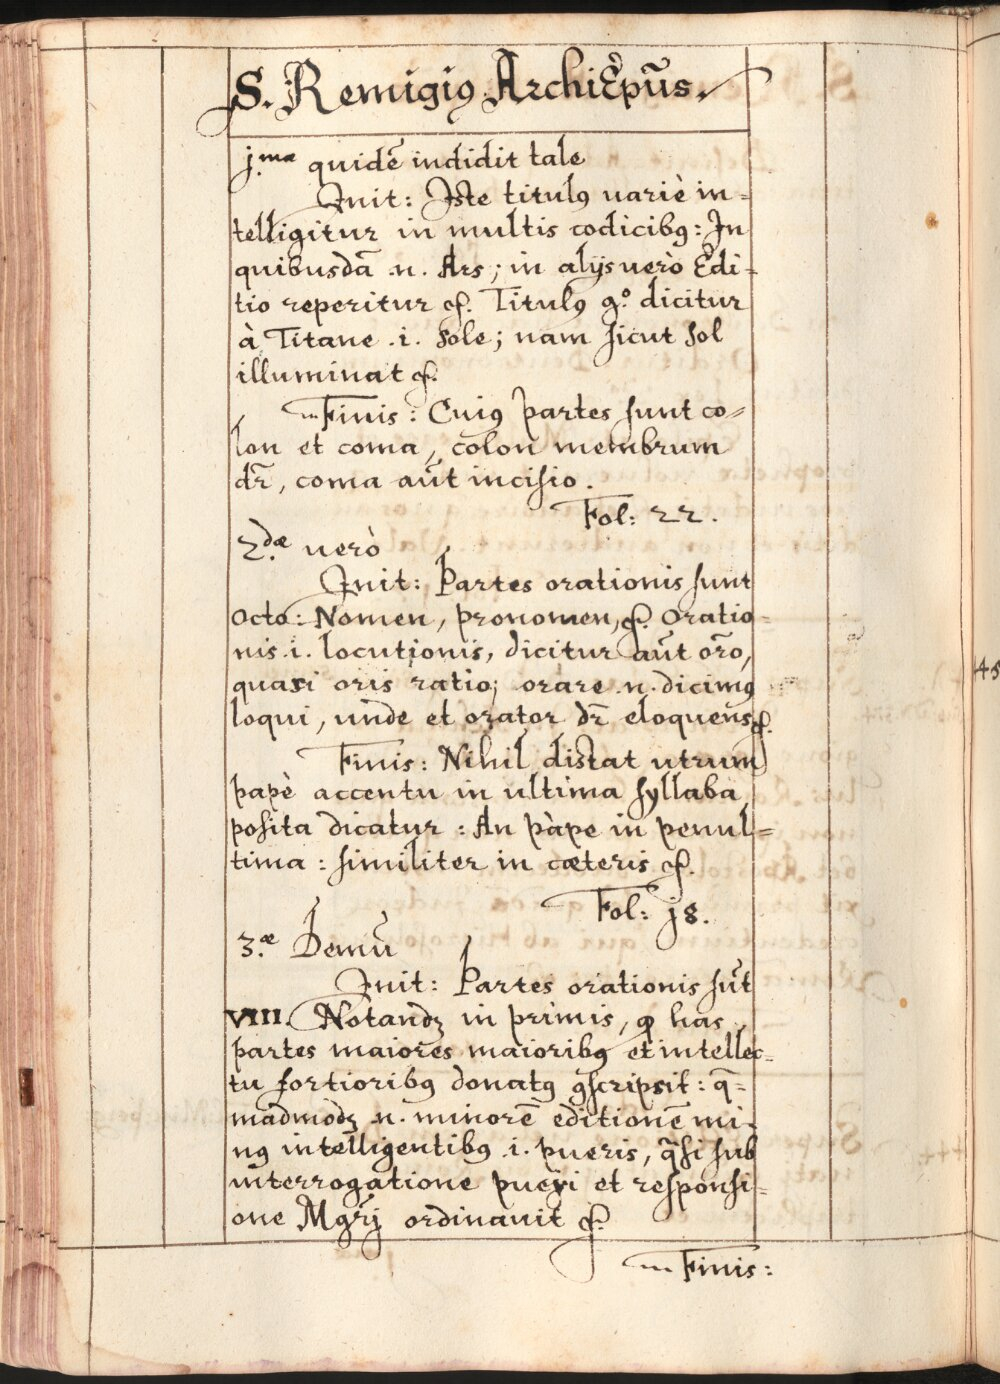 S. Remigiꝰ ArchiEp̃us.
j.ma quidē indidit tale
Init: Iste titulꝰ uariè in=
telligitur in multis codicibꝰ: In
quibusdā .n. Ars; in alijs uerò Edi=
tio reperitur &. Titulꝰ g.º dicitur
à Titane .i. Sole; nam sicut sol
illuminat &.
Finis: Cuiꝰ partes sunt co=
lon et coma, colon membrum
dr̄, coma aūt incisio.
Fol: 22.
2.dæ uerò
Init: Partes orationis sunt
octo: Nomen, pronomen, &. Oratio=
nis .i. locutionis, dicitur aūt orō,
quasi oris ratio; orare .n. dicimꝰ
loqui, unde et orator dr̄ eloquens &.
Finis: Nihil distat utrum
papè accentu in ultima syllaba
posita dicatur: An pàpe in penul=
tima: similiter in cæteris &.
Fol: j8.
3.æ Demū
Init: Partes orationis sūt
VIII. Notandꝫ in primis, ꝙ has
partes maiores maioribꝰ et intellec=
tu fortioribꝰ donatꝰ ꝯscripsit: q̄=
madmodꝫ .n. minorē editionē mi=
nꝰ intelligentibꝰ .i. pueris, q̄si sub
interrogatione pueri et responsi=
one Mgr̄j ordinauit &.
Finis:
45